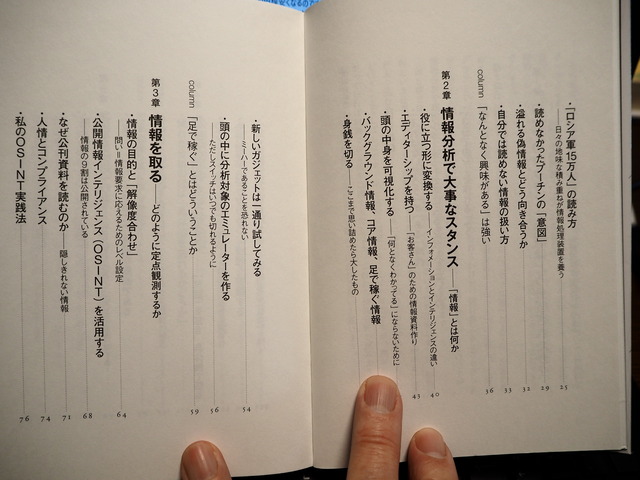 ・「ロシア軍15万人」の読み方
――日々の地味な積み重ねが情報処理装置を養う 23
・読めなかったプーチンの「意図」 29
・溢れる偽情報とどう向き合うか 32
・自分では読めない情報の扱い方 33
column 「なんとなく興味がある」は強い 36
第2章 情報分析で大事なスタンス――「情報」とは何か
・役に立つ形に変換する――インフォメーションとインテリジェンスの違い 40
・エディターシップを持つ――「お客さん」のための情報資料作り 43
・頭の中を可視化する――「何となくわかってる」にならないために
・バックグラウンド情報、コア情報、足で稼ぐ情報
・身銭を切る――ここまで思い詰めたら大したもの
・新しいガジェットは一通り試してみる
――ミーハーであることを恐れない 54
・頭の中に分析対象のエミュレーターを作る
――ただしスイッチはいつでも切れるように 56
column 「足で稼ぐ」とはどういうことか 59
第3章 情報を取る――どのように定点観測するか
・情報の目的と「解像度合わせ」
――問い=情報要求に応えるためのレベル設定 64
・公開情報インテリジェンス(OSINT)を活用する
――情報の9割は公開されている 68
・なぜ公刊資料を読むのか――隠しきれない情報 71
・人情とコンプライアンス 74
・私のOSINT実践法 76